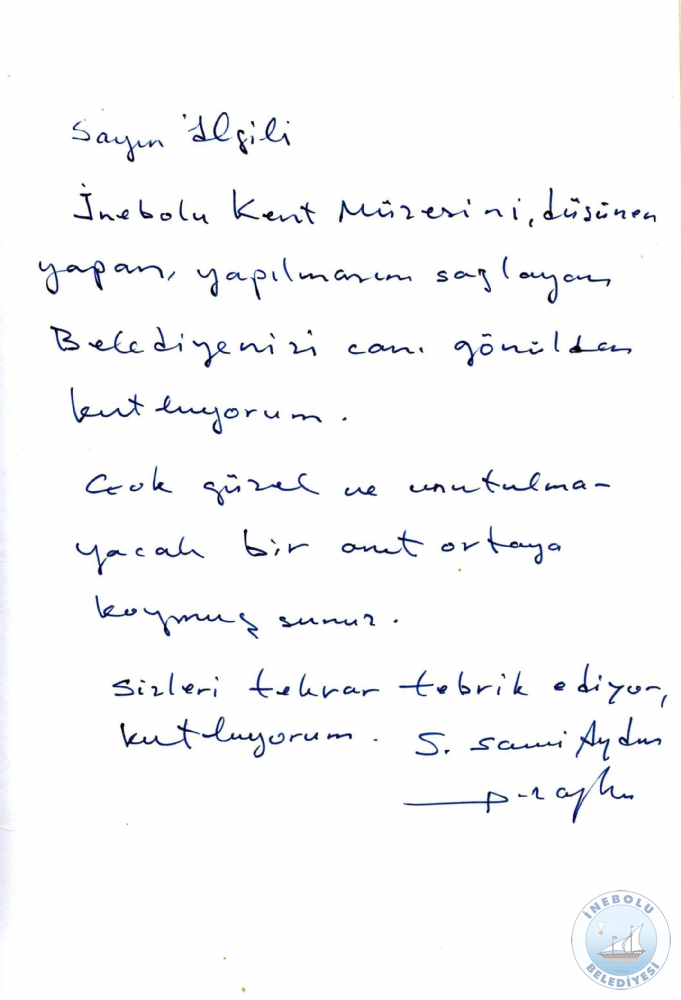 Sayın İlgili
İnebolu Kent Müzesini, düşünen
yapan, yapılmasını sağlayan
Belediyenizi canı gönülden
kutluyorum.
Çok güzel ve unutulma-
yacak bir anıt ortaya
koymuşsunuz.
Sizleri tekrar tebrik ediyor,
kutluyorum. S. Sami Aydın
İNEBOLU
BELEDİYESİ